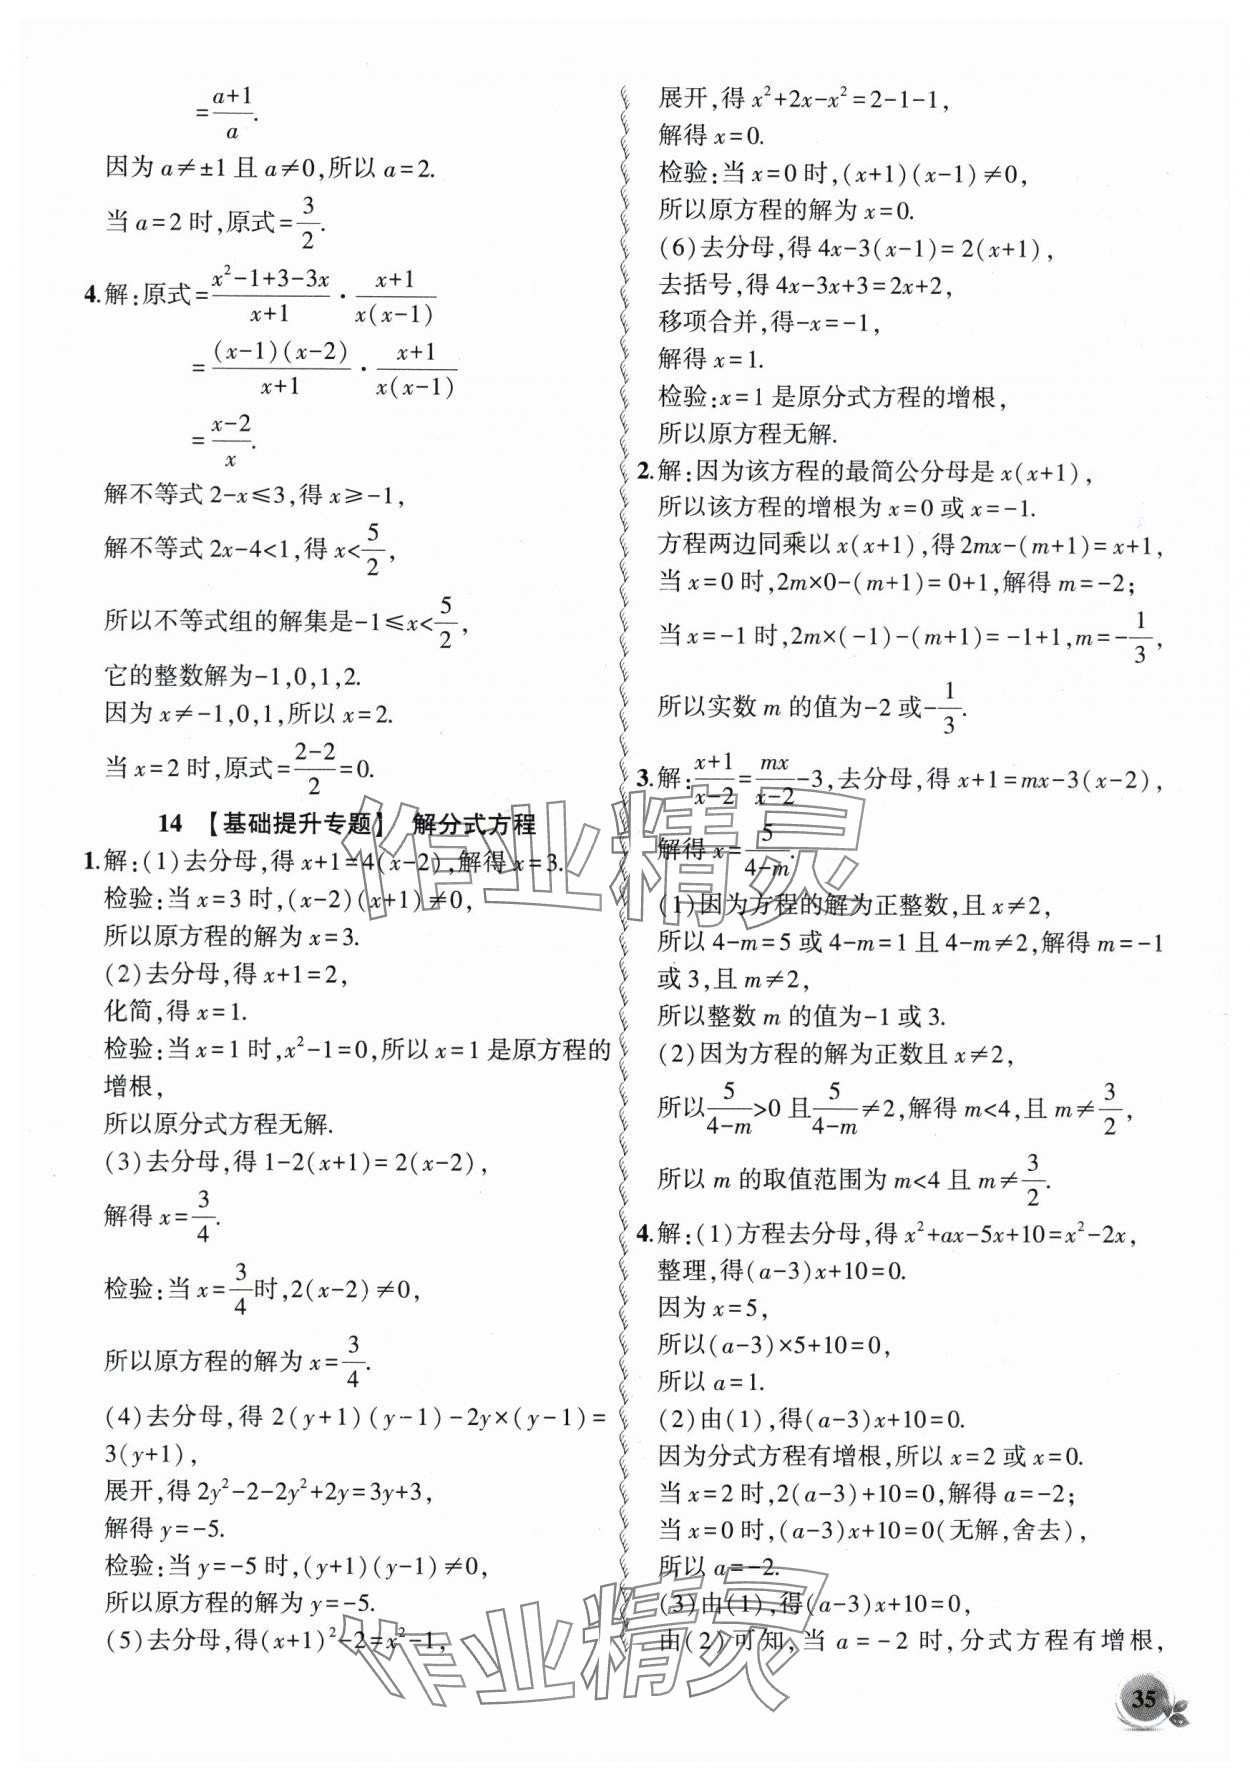 =(a+1)/a.
因为 a≠±1 且 a≠0,所以 a=2.
当 a=2 时,原式=3/2.
4.解:原式=(x²-1+3-3x)/(x+1)·(x+1)/(x(x-1))
=((x-1)(x-2))/(x+1)·(x+1)/(x(x-1))
=(x-2)/x.
解不等式 2-x≤3,得 x≥-1,
解不等式 2x-4<1,得 x<5/2,
所以不等式组的解集是-1≤x<5/2,
它的整数解为-1,0,1,2.
因为 x≠-1,0,1,所以 x=2.
当 x=2 时,原式=(2-2)/2=0.
14 【基础提升专题】 解分式方程
1.解:(1)去分母,得 x+1=4(x-2),解得 x=3.
检验:当 x=3 时,(x-2)(x+1)≠0,
所以原方程的解为 x=3.
(2)去分母,得 x+1=2,
化简,得 x=1.
检验:当 x=1 时,x²-1=0,所以 x=1 是原方程的
增根,
所以原分式方程无解.
(3)去分母,得 1-2(x+1)=2(x-2),
解得 x=3/4.
检验:当 x=3/4时,2(x-2)≠0,
所以原方程的解为 x=3/4.
(4)去分母,得 2(y+1)(y-1)-2y×(y-1)=
3(y+1),
展开,得 2y²-2-2y²+2y=3y+3,
解得 y=-5.
检验:当 y=-5 时,(y+1)(y-1)≠0,
所以原方程的解为 y=-5.
(5)去分母,得(x+1)²-2=x²-1,
展开,得 x²+2x-x²=2-1-1,
解得 x=0.
检验:当 x=0 时,(x+1)(x-1)≠0,
所以原方程的解为 x=0.
(6)去分母,得 4x-3(x-1)=2(x+1),
去括号,得 4x-3x+3=2x+2,
移项合并,得-x=-1,
解得 x=1.
检验:x=1 是原分式方程的增根,
所以原方程无解.
2.解:因为该方程的最简公分母是 x(x+1),
所以该方程的增根为 x=0 或 x=-1.
方程两边同乘以 x(x+1),得 2mx-(m+1)=x+1,
当 x=0 时,2m×0-(m+1)=0+1,解得 m=-2;
当 x=-1 时,2m×(-1)-(m+1)=-1+1,m=-1/3,
所以实数 m 的值为-2 或-1/3.
3.解:(x+1)/(x-2)=mx/(x-2)-3,去分母,得 x+1=mx-3(x-2),
解得 x=5/(4-m).
(1)因为方程的解为正整数,且 x≠2,
所以 4-m=5 或 4-m=1 且 4-m≠2,解得 m=-1
或 3,且 m≠2,
所以整数 m 的值为-1 或 3.
(2)因为方程的解为正数且 x≠2,
所以5/(4-m)>0 且5/(4-m)≠2,解得 m<4,且 m≠3/2,
所以 m 的取值范围为 m<4 且 m≠3/2.
4.解:(1)方程去分母,得 x²+ax-5x+10=x²-2x,
整理,得(a-3)x+10=0.
因为 x=5,
所以(a-3)×5+10=0,
所以 a=1.
(2)由(1),得(a-3)x+10=0.
因为分式方程有增根,所以 x=2 或 x=0.
当 x=2 时,2(a-3)+10=0,解得 a=-2;
当 x=0 时,(a-3)x+10=0(无解,舍去),
所以 a=-2.
(3)由(1),得(a-3)x+10=0,
由(2)可知,当 a=-2 时,分式方程有增根,
35
作业精灵
作业精灵